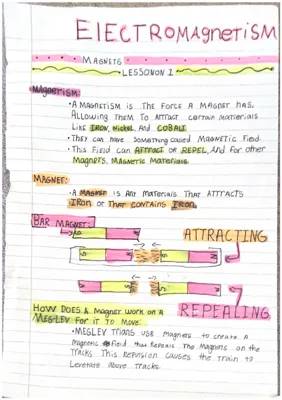 ELECTROMAGNETISM
MAGNETS
LESSONON 1
MAGNETISM:
• A MAGNETISM IS THE FORCE A MAGNET HAS,
ALLOWING THEM TO ATTRACT CERTAIN MATERIALS
LIKE IRON, NICKEL, AND COBALT
• THEY CAN HAVE SOMETHING CALLED MAGNETIC FIELD.
• THIS FIELD CAN ATTRACT OR REPEL, AND FOR OTHER
MAGNETS, MAGNETIC MATERIALS.
MAGNET:
• A MAGNET IS ANY MATERIALS THAT ATTRACTS
IRON OR THAT CONTAINS IRON.
BAR MAGNET:
ATTRACTING
REPEALING
HOW DOES A MAGNET WORK ON A
MEGLEV FOR IT TO MOVE.
• MEGLEV TRAINS USE MAGNETS TO CREATE A
MAGNETIC FIELD THAT REPEALS THE MAGNETS ON THE
TRACKS. THIS REPULSION CAUSES THE TRAIN TO
LEVETATE ABOVE TRACKS.